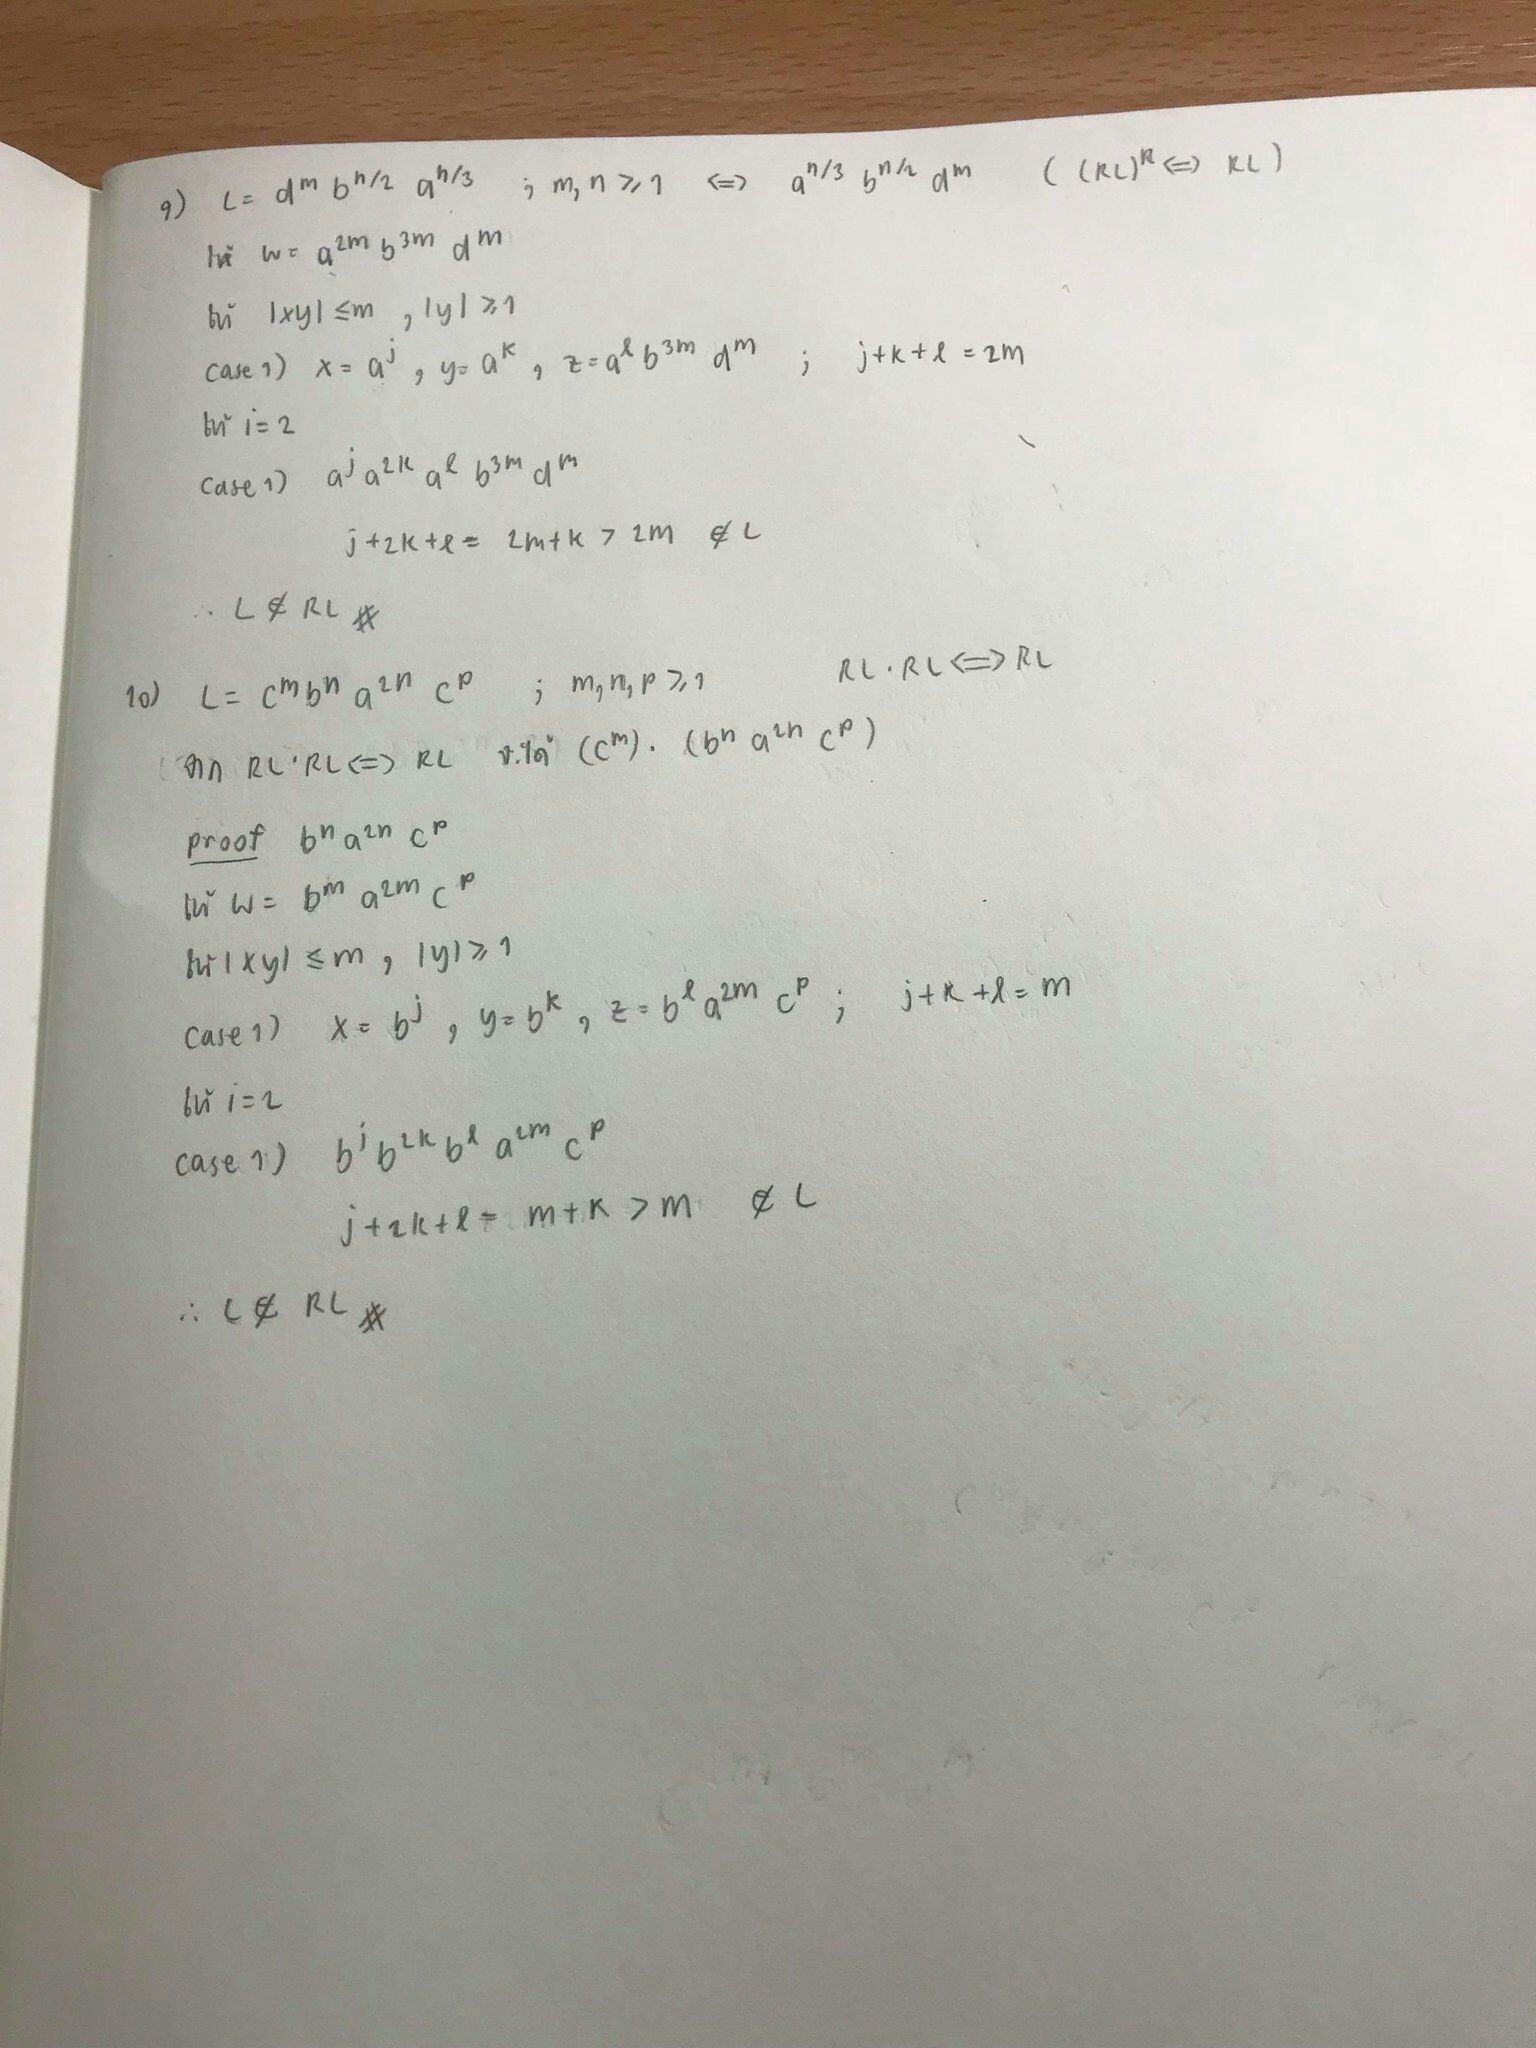 9) L = d^m b^{n/2} a^{n/3} ; m, n ≥ 1 <=> a^{n/3} b^{n/2} d^m ( (RL)^R <=> RL )
ให้ w = a^{2m} b^{3m} d^m
ให้ |xy| ≤ m , |y| ≥ 1
case 1) x = a^j , y = a^k , z = a^l b^{3m} d^m ; j+k+l = 2m
ให้ i = 2
case 1) a^j a^{2k} a^l b^{3m} d^m
j+2k+l = 2m+k > 2m ∉ L
∴ L ∉ RL #
10) L = c^m b^n a^{2n} c^p ; m, n, p ≥ 1 RL · RL <=> RL
จาก RL · RL <=> RL จะได้ (c^m) · (b^n a^{2n} c^p)
proof b^n a^{2n} c^p
ให้ w = b^m a^{2m} c^p
ให้ |xy| ≤ m , |y| ≥ 1
case 1) x = b^j , y = b^k , z = b^l a^{2m} c^p ; j+k+l = m
ให้ i = 2
case 1) b^j b^{2k} b^l a^{2m} c^p
j+2k+l = m+k > m ∉ L
∴ L ∉ RL #